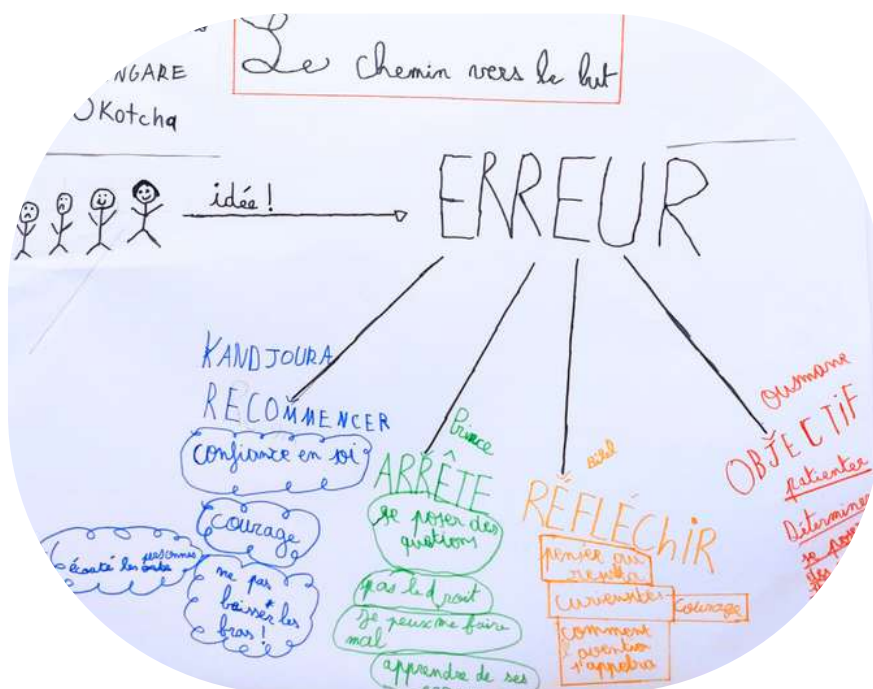 NGARE
Kotcha
Le chemin vers le but
idée !
ERREUR
KANDJOURA
RECOMMENCER
confiance en soi
courage
écouté les
personnes
ne pas
baisser les
bras !
Prince
ARRÊTE
se poser des
quotions
pas le droit
je peux me faire
mal
apprendre de ses
Bilel
RÉFLÉCHiR
pensée au
curieusités
courage
comment
l'avention
s'appelra
Ousmane
OBJECTiF
patienter
Déterminer
se poser